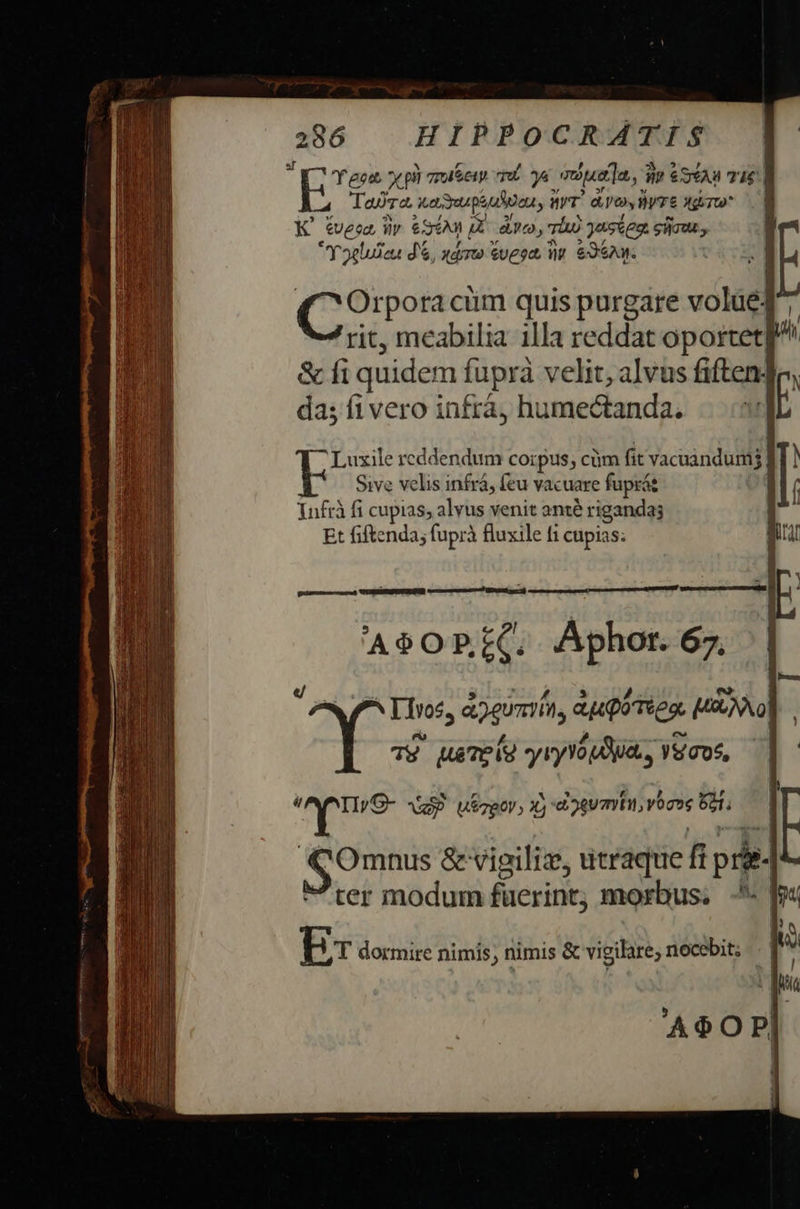 286 HIPPOCRATIS
Ἔυροα χρὴ ποιέειν τά γε σώματα, ἢν ἐθέλῃ τις
Ταῦτα καθαιρέεσθαι, ἤντ' ἄνω, ἤντε κάτω·
Κ' εὔροα ἢν ἐθέλῃ μὲν ἄνω, τὴν γαστέρα στῆσαι,
Ὑγρῆναι δὲ, κάτω εὔροα ἢν ἐθέλῃ.
COrpora cùm quis purgare volue
rit, meabilia illa reddat oportet
& ſi quidem ſuprà velit, alvus ſiſten
da; ſi vero infrá, humectanda.
FLuxile reddendum corpus, cùm ſit vacuandum;
Sive velis infrá, ſeu vacuare ſuprá;
Infrà ſi cupias, alvus venit antè riganda;
Et ſiſtenda; ſuprà fluxile ſi cupias.
ἈΦΟΡ. ξζ. Aphor. 67.
ὝΠνος, ἀγρυπνίη, ἀμφότερα μᾶλλον
τοῦ μετρίου γιγνόμενα, νοῦσος.
ὝΠνος ὑπὲρ μέτρον, καὶ ἀγρυπνίη, νόσος ἐστί.
SOmnus & vigiliæ, utraque ſi præ-
ter modum fuerint, morbus.
ET dormire nimis, nimis & vigilare, nocebit.
ἈΦΟΡ